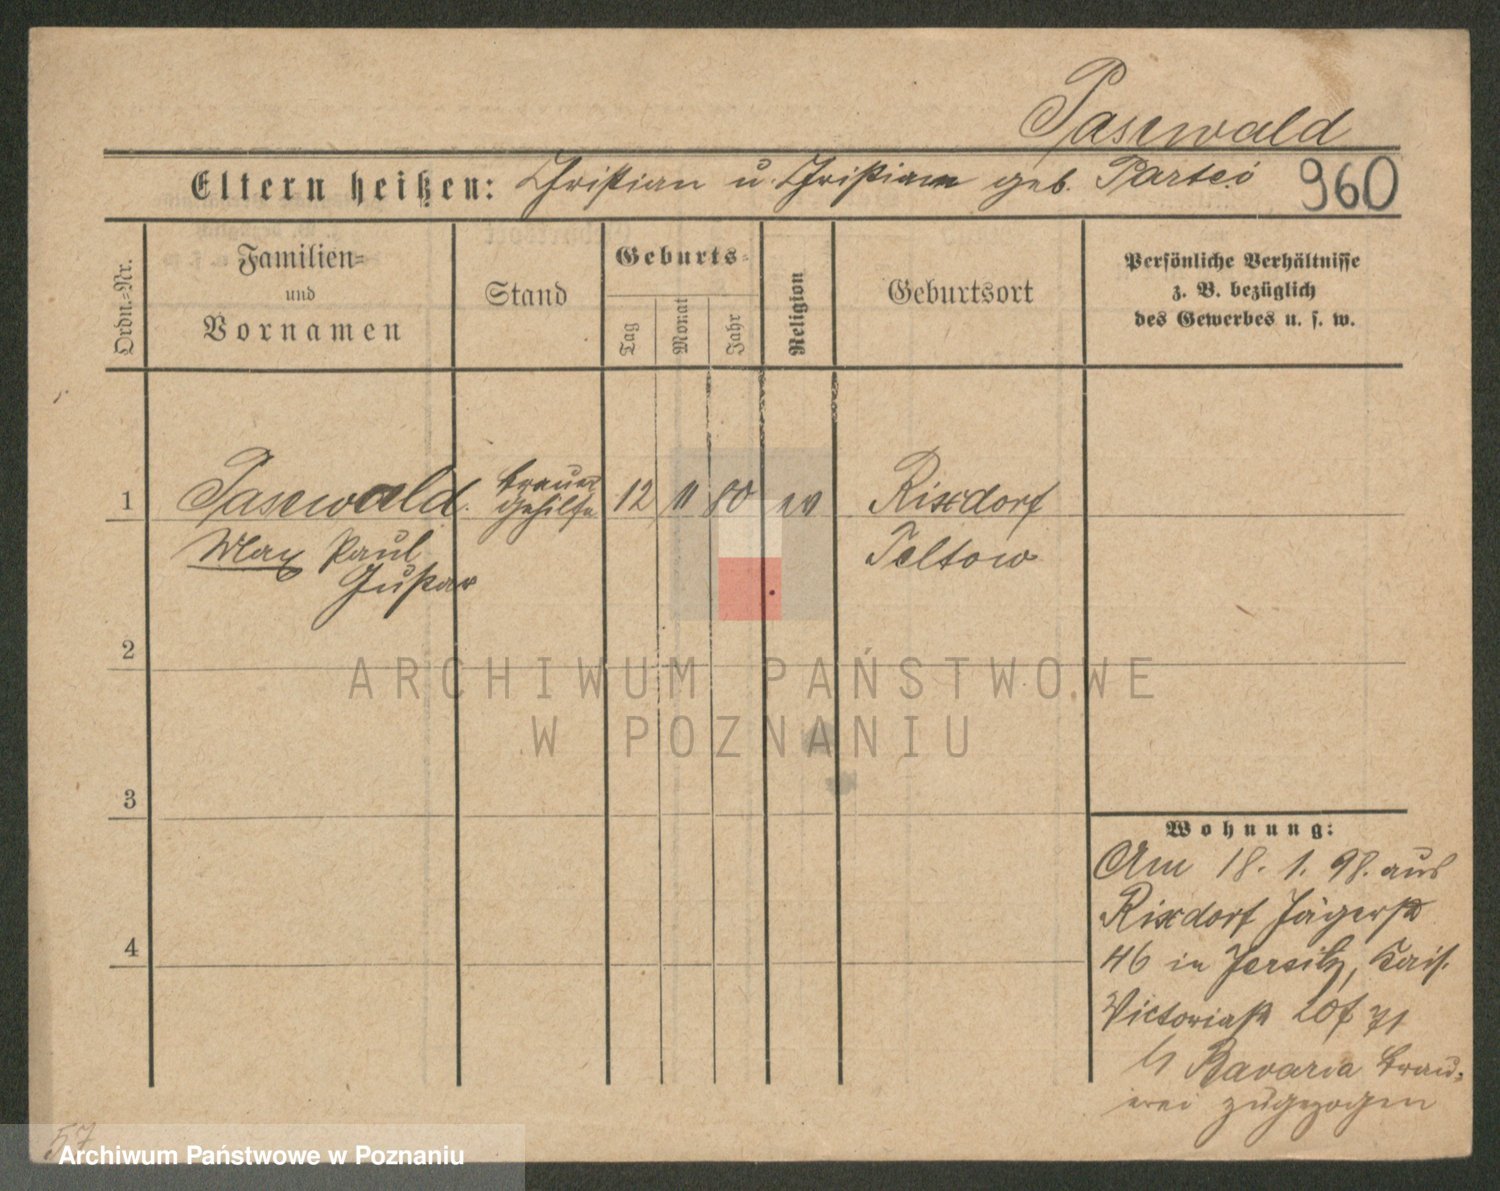 Pasewald
Eltern heißen: Christian u. Christiane geb. 960
Ordn.=Nr.
Familien=
und
Vornamen
Stand
Geburts=
Tag
Monat
Jahr
Religion
Geburtsort
Persönliche Verhältnisse
z. B. bezüglich
des Gewerbes u. s. w.
1
Pasewald.
Max Paul
Gustav
Brauer
gehilfe
12 11 80 ev
Rixdorf
Teltow
2
3
4
Wohnung:
Am 18. 1. 98. aus
Rixdorf Jägerstr
46 in Jersitz, Kais.
Victoriastr
b Bavaria Brau=
erei zugezogen
57
ARCHIWUM PAŃSTWOWE
W POZNANIU
Archiwum Państwowe w Poznaniu